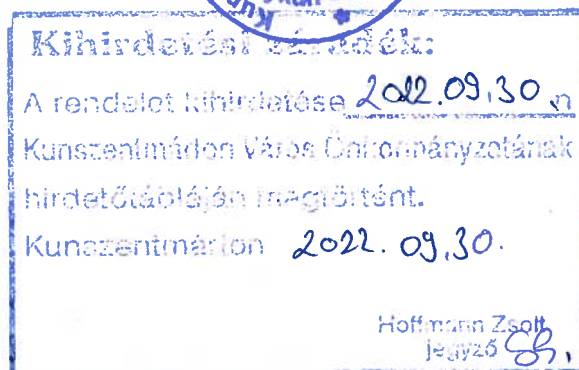 Kihirdetési záradék:
A rendelet kihirdetése 2022.09.30.n
Kunszentmárton Város Önkormányzatának
hirdetőtábláján megtörtént.
Kunszentmárton 2022. 09.30.
Hoffmann Zsolt
jegyző